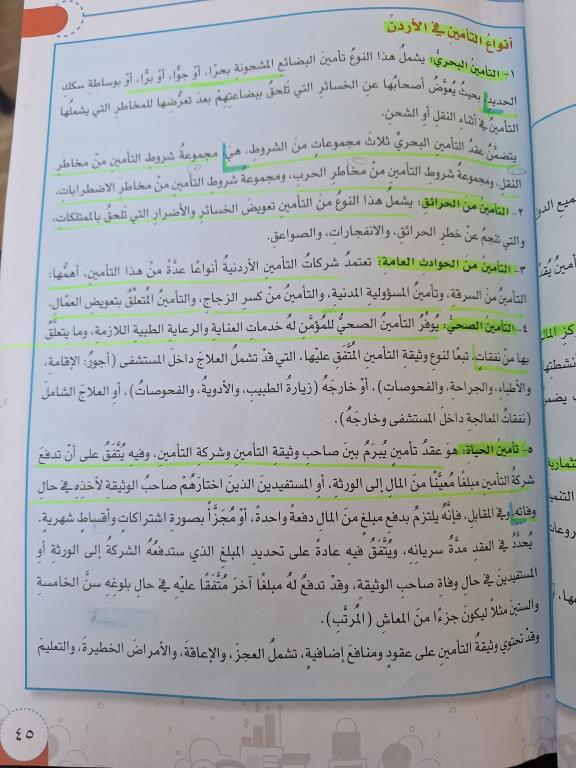 أنواعُ التأمينِ في الأردنِّ
١- التأمينُ البحريُّ: يشملُ هذا النوعُ تأمينَ البضائعِ المشحونةِ بحرًا، أوْ جوًّا، أوْ برًّا، أوْ بوساطةِ سككِ
الحديدِ بحيثُ يُعوَّضُ أصحابُها عنِ الخسائرِ التي تلحقُ ببضاعتِهِمْ بعدَ تعرُّضِها للمخاطرِ التي يشملُها
التأمينُ في أثناءِ النقلِ أوِ الشحنِ.
يتضمَّنُ عقدُ التأمينِ البحريِّ ثلاثَ مجموعاتٍ منَ الشروطِ، هيَ مجموعةُ شروطِ التأمينِ منْ مخاطرِ
النقلِ، ومجموعةُ شروطِ التأمينِ منْ مخاطرِ الحربِ، ومجموعةُ شروطِ التأمينِ منْ مخاطرِ الاضطراباتِ.
٢- التأمينُ منَ الحرائقِ: يشملُ هذا النوعُ منَ التأمينِ تعويضَ الخسائرِ والأضرارِ التي تلحقُ بالممتلكاتِ،
والتي تنجمُ عنْ خطرِ الحرائقِ، والانفجاراتِ، والصواعقِ.
٣- التأمينُ منَ الحوادثِ العامةِ: تعتمدُ شركاتُ التأمينِ الأردنيةُ أنواعًا عدَّةً منْ هذا التأمينِ، أهمُّها:
التأمينُ منَ السرقةِ، وتأمينُ المسؤوليةِ المدنيةِ، والتأمينُ منْ كسرِ الزجاجِ، والتأمينُ المُتعلِّقُ بتعويضِ العمّالِ.
٤- التأمينُ الصحيُّ: يُوفِّرُ التأمينُ الصحيُّ للمُؤمَّنِ لهُ خدماتِ العنايةِ والرعايةِ الطبيةِ اللازمةِ، وما يتعلَّقُ
بها منْ نفقاتٍ، تبعًا لنوعِ وثيقةِ التأمينِ المُتَّفَقِ عليْها، التي قدْ تشملُ العلاجَ داخلَ المستشفى (أجورُ: الإقامةِ،
والأطباءِ، والجراحةِ، والفحوصاتِ)، أوْ خارجَهُ (زيارةُ الطبيبِ، والأدويةُ، والفحوصاتُ)، أوِ العلاجَ الشاملَ
(نفقاتُ المعالجةِ داخلَ المستشفى وخارجَهُ).
٥- تأمينُ الحياةِ: هوَ عقدُ تأمينٍ يُبرَمُ بينَ صاحبِ وثيقةِ التأمينِ وشركةِ التأمينِ، وفيهِ يُتَّفَقُ على أنْ تدفعَ
شركةُ التأمينِ مبلغًا مُعيَّنًا منَ المالِ إلى الورثةِ، أوِ المستفيدينَ الذينَ اختارَهُمْ صاحبُ الوثيقةِ لأخذِهِ في حالِ
وفاتِهِ وفي المقابلِ، فإنَّهُ يلتزمُ بدفعِ مبلغٍ منَ المالِ دفعةً واحدةً، أوْ مُجزَّأً بصورةِ اشتراكاتٍ وأقساطٍ شهريةٍ.
يُحدَّدُ في العقدِ مدَّةُ سريانِهِ، ويُتَّفَقُ فيهِ عادةً على تحديدِ المبلغِ الذي ستدفعُهُ الشركةُ إلى الورثةِ أوِ
المستفيدينَ في حالِ وفاةِ صاحبِ الوثيقةِ، وقدْ تدفعُ لهُ مبلغًا آخرَ مُتَّفَقًا عليْهِ في حالِ بلوغِهِ سنَّ الخامسةِ
والستينَ مثلًا ليكونَ جزءًا منَ المعاشِ (المُرتَّبِ).
وقدْ تحتوي وثيقةُ التأمينِ على عقودٍ ومنافعَ إضافيةٍ، تشملُ العجزَ، والإعاقةَ، والأمراضَ الخطيرةَ، والتعليمَ
٤٥